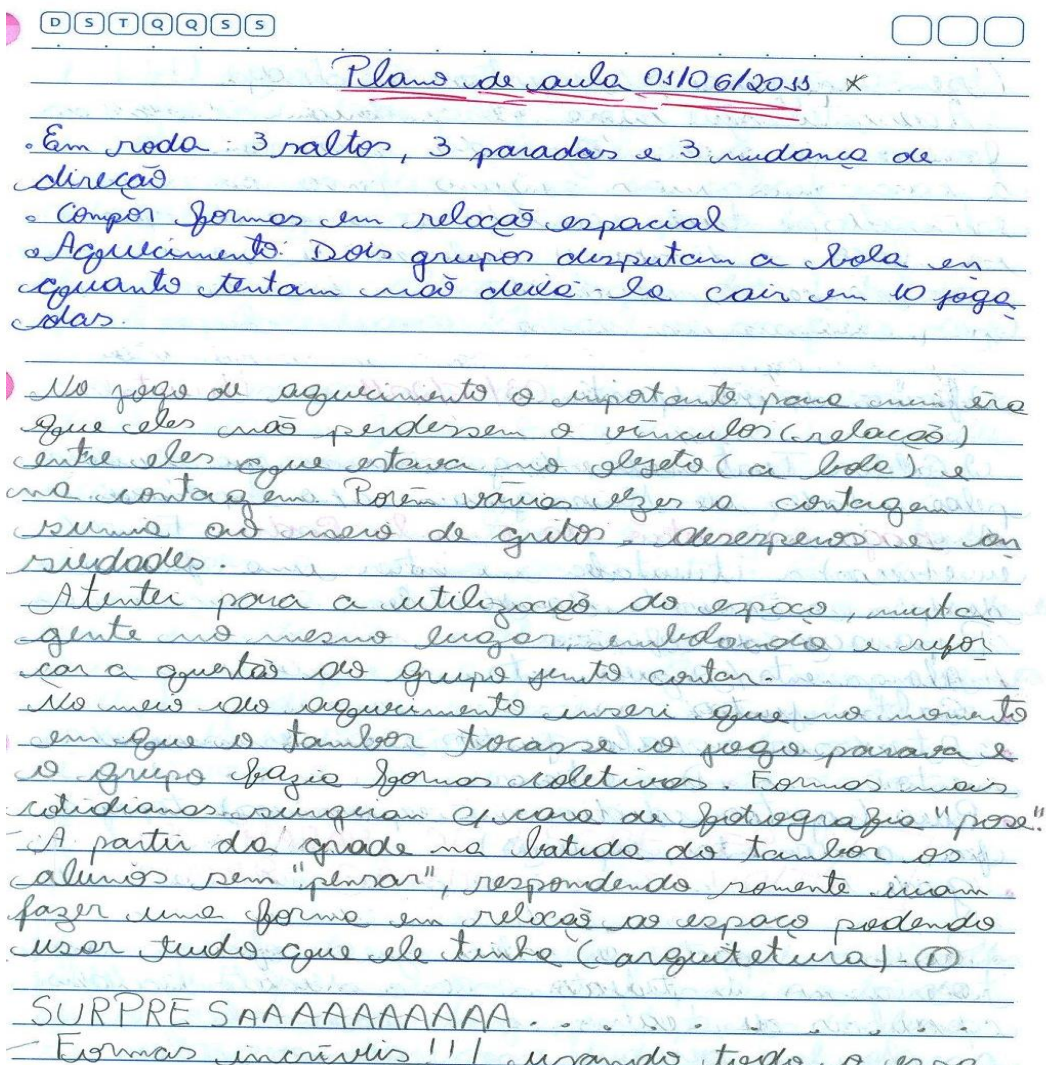 D S T Q Q S S
Plano de aula 01/06/2011 *
• Em roda: 3 saltos, 3 paradas e 3 mudança de
direção
• Compor formas em relação espacial
• Aquecimento: Dois grupos disputam a bola en
quanto tentam não deixá-la cair em 10 joga
das.
No jogo de aquecimento o impotante para mim era
que eles não perdessem o vínculos (relação)
entre eles que estava no objeto (a bola) e
na contagem. Porém várias vezes a contagem
sumia ao meio de gritos, desesperos e an
siedades.
Atentei para a utilização do espaço, muita
gente no mesmo lugar, embolando e refor
çar a questão do grupo junto contar.
No meio do aquecimento inseri que no momento
em que o tambor tocasse o jogo parava e
o grupo fazia formas coletivas. Formas mais
cotidianas surgiram cara de fotografia "pose."
- A partir da grade na batida do tambor os
alunos sem "pensar", respondendo somente iriam
fazer uma forma em relação ao espaço podendo
usar tudo que ele tinha (arquitetura) - ①
SURPRESAAAAAAAAAAA . . . . . . . .
- Formas incríveis!!! usando todo o espa